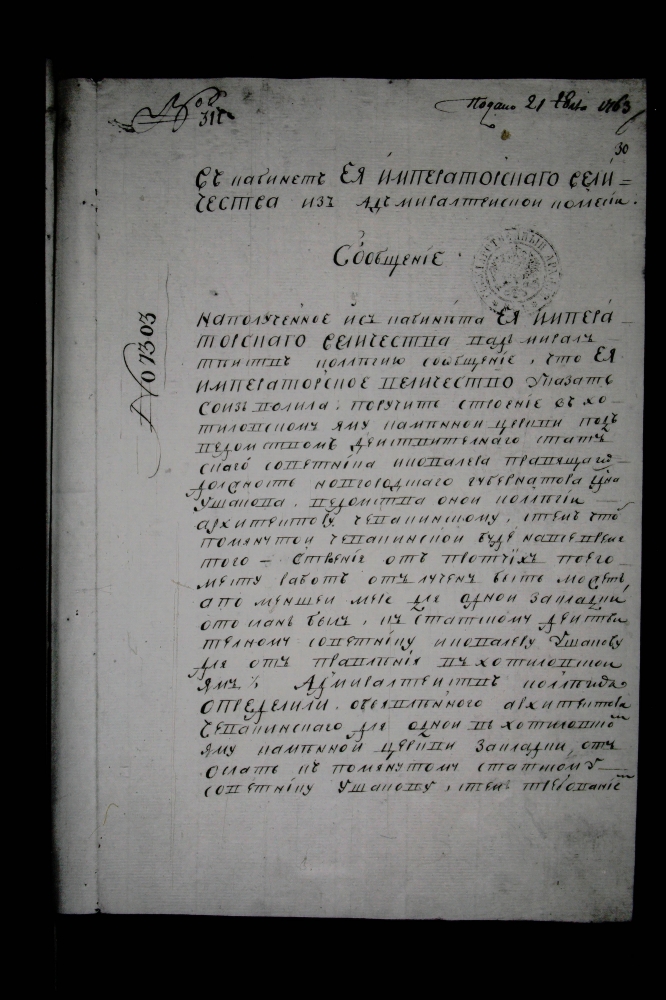 Подано 21 1763
30
Въ кабинетъ Ея Императорскаго Вели=
чества изъ Адмиралтейской колеги.
Сообщение
No 1303
На полученное изъ кабинета Ея Импера
торскаго Величества въ Адмирал
тейскую коллегию сообщение, что Ея
Императорское Величество указать
соизволила, поручить строение въ Хо
тиловскому яму каменной церкви подъ
ведомствомъ действителнаго статъ
скаго советника и ковалера правящаго
должность новгородцкаго губернатора
Ушакова. ведомства оной коллегии
архитектору, Чевакинскому, и темъ что
помянутой Чевакинской буде
того строение отъ протчихъ по ево
месту работъ отлученъ быть можетъ,
а по меншей мере для одной закладки
отосланъ былъ, къ статскому действи
телному советнику и ковалеру Ушакову
для отправления въ Хотиловской
ямъ. Адмиралтейская коллегия
определили. объявленного архитектора
Чевакинскаго для одной въ Хотиловско
яму каменной церкви закладки, отъ
ослать къ помянутому статскому
советнику Ушакову, и темъ требование